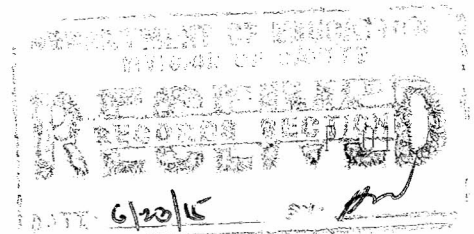 DEPARTMENT OF EDUCATION
DIVISION OF
RECEIVED
RECORDS SECTION
DATE: 6/23/15 BY: